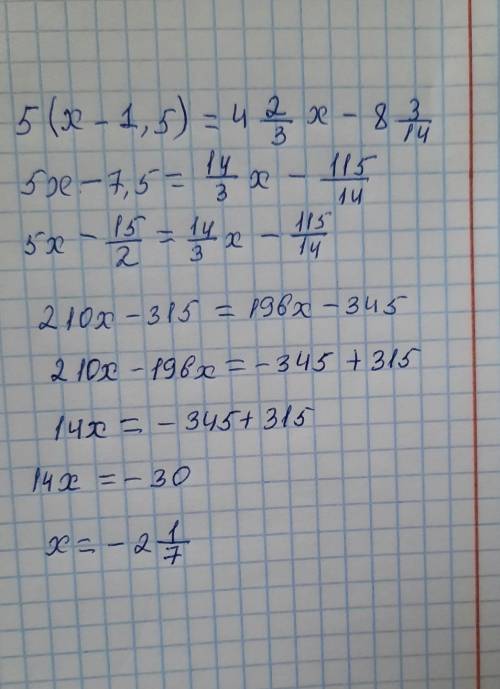 5(x-1,5)=4 2/3 x-8 3/14
5x-7,5=14/3 x-115/14
5x-15/2=14/3 x-115/14
210x-315=196x-345
210x-196x=-345+315
14x=-345+315
14x=-30
x=-2 1/7